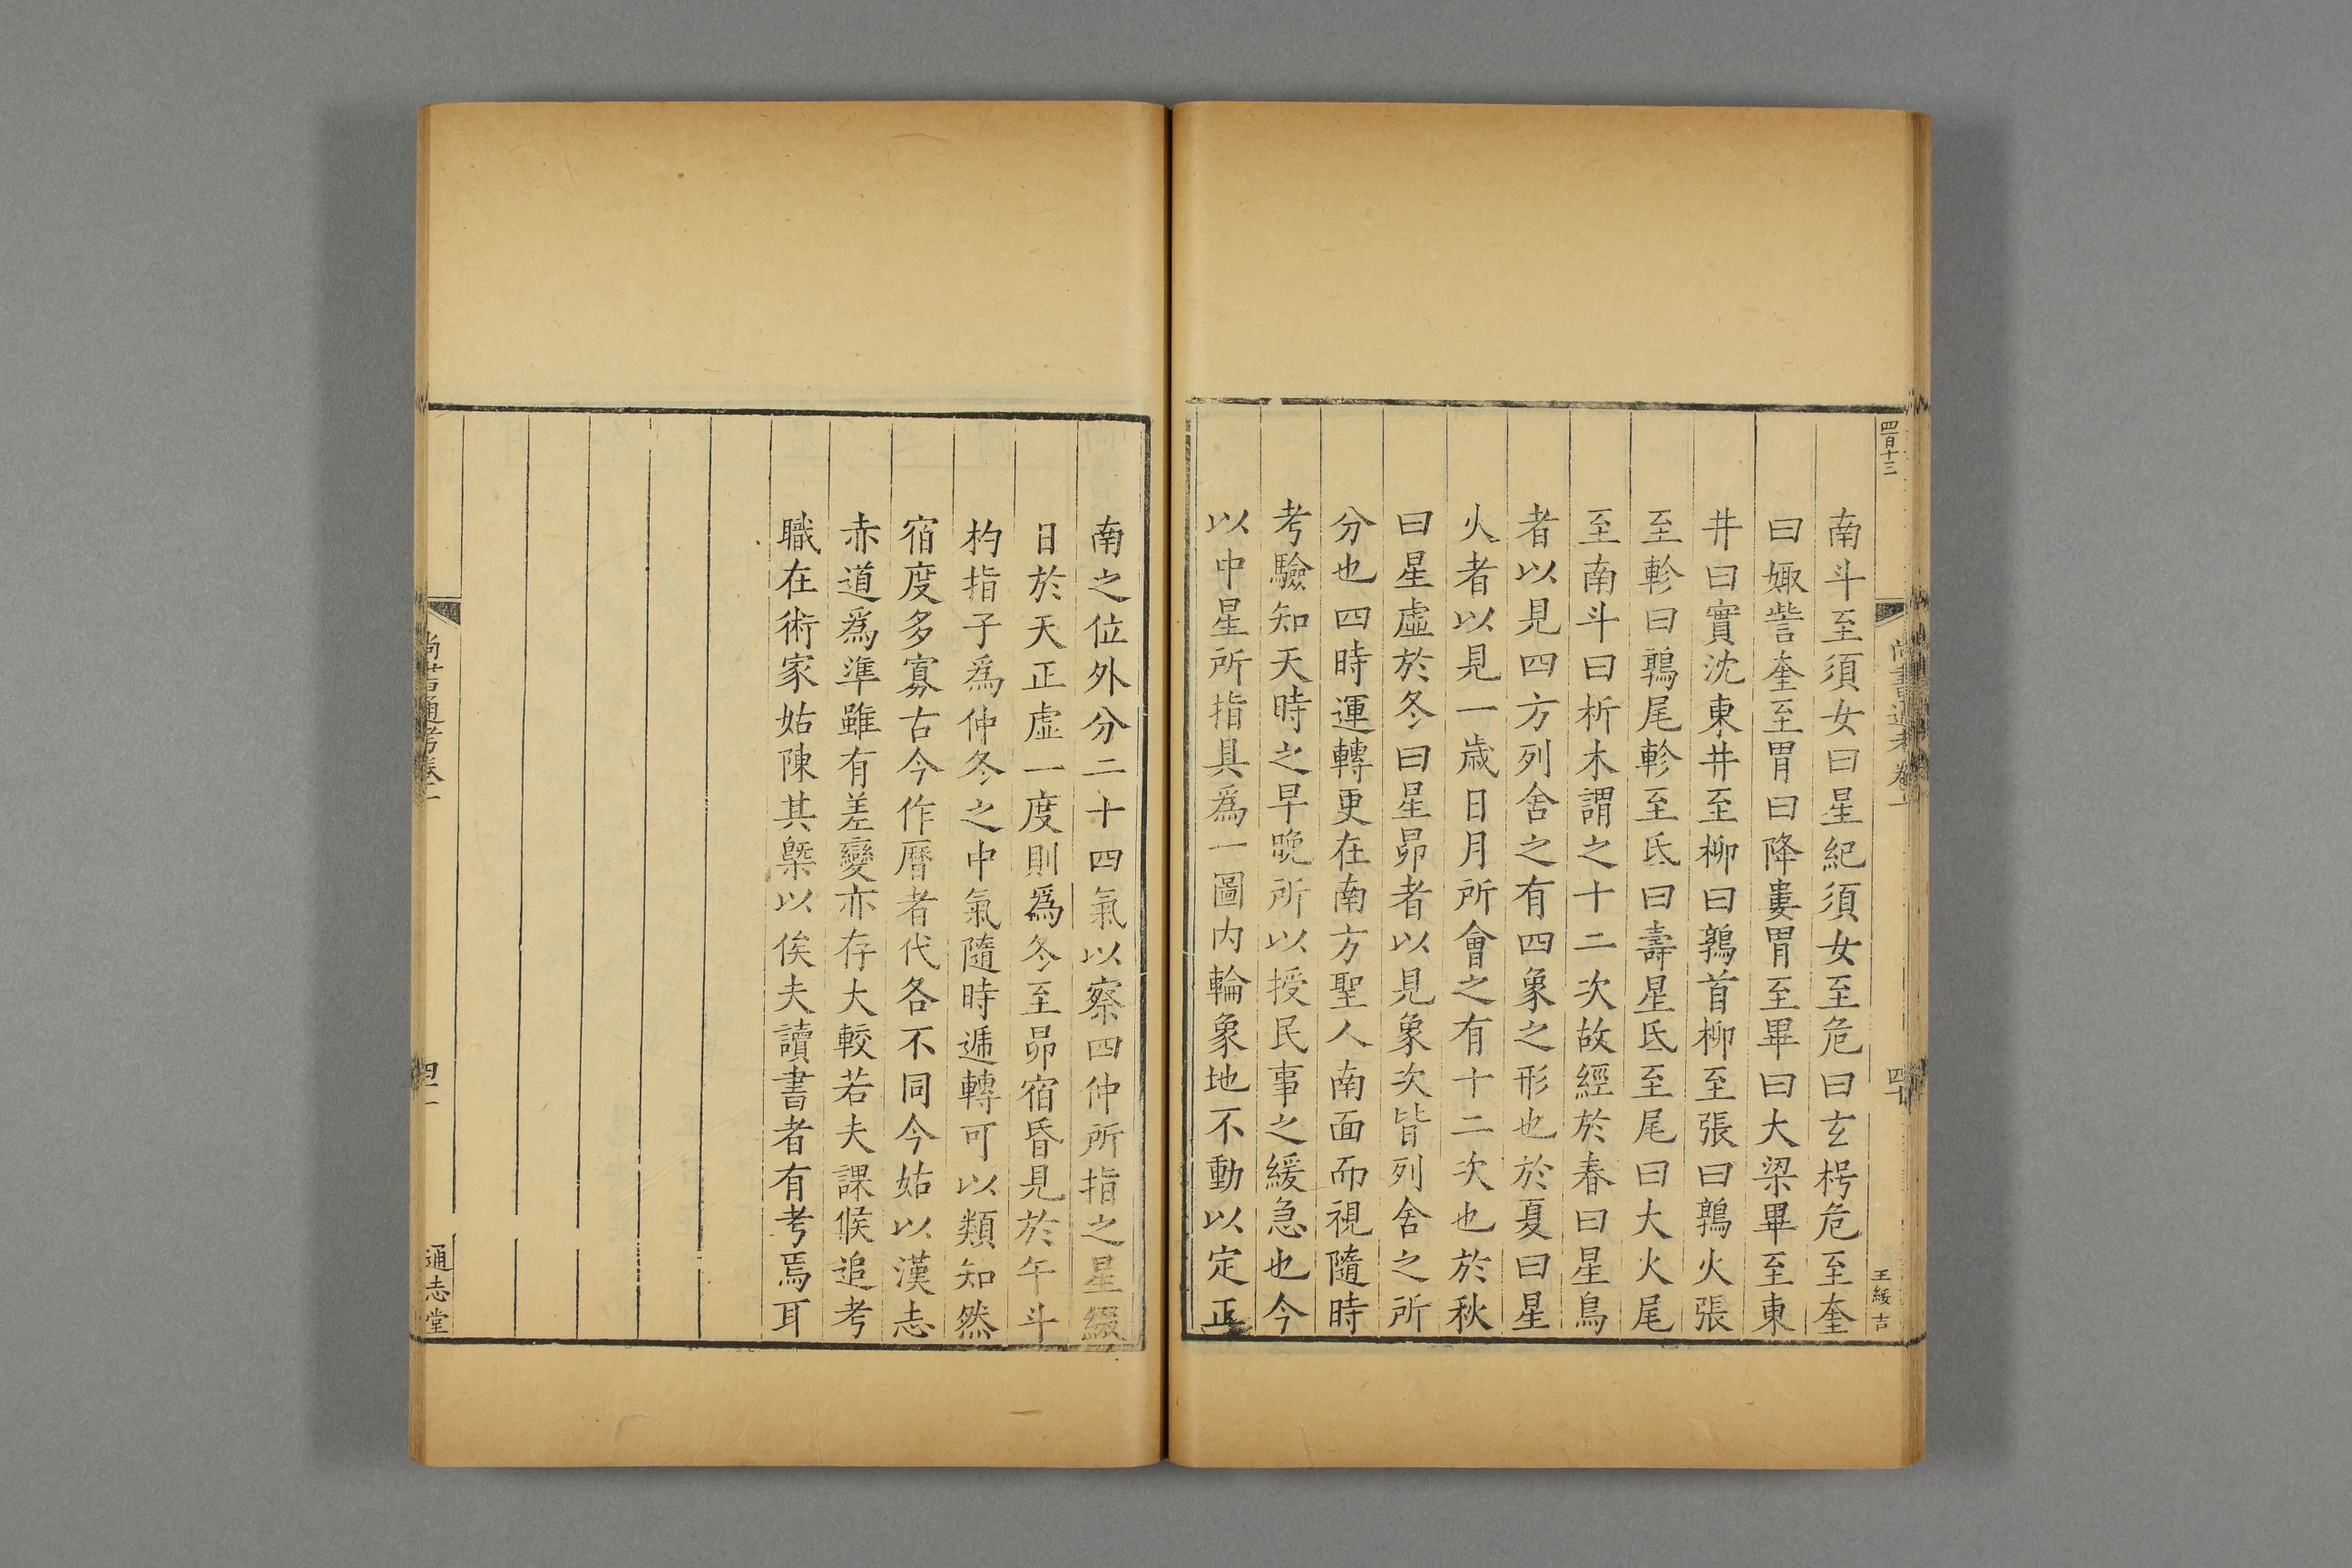 四百十三
尚書通考卷一
四十
王綏吉
南斗至須女曰星紀須女至危曰玄枵危至奎
曰娵訾奎至胃曰降婁胃至畢曰大梁畢至東
井曰實沈東井至柳曰鶉首柳至張曰鶉火張
至軫曰鶉尾軫至氐曰壽星氐至尾曰大火尾
至南斗曰析木謂之十二次故經於春曰星鳥
者以見四方列舍之有四象之形也於夏曰星
火者以見一歲日月所會之有十二次也於秋
曰星虛於冬曰星昴者以見象次皆列舍之所
分也四時運轉更在南方聖人南面而視隨時
考驗知天時之早晚所以授民事之緩急也今
以中星所指具爲一圖內輪象地不動以定正
南之位外分二十四氣以察四仲所指之星綴
日於天正虛一度則爲冬至昴宿昏見於午斗
杓指子爲仲冬之中氣隨時遞轉可以類知然
宿度多寡古今作曆者代各不同今姑以漢志
赤道爲準雖有差變亦存大較若夫課候追考
職在術家姑陳其槩以俟夫讀書者有考焉耳
尚書通考卷一
四一
通志堂